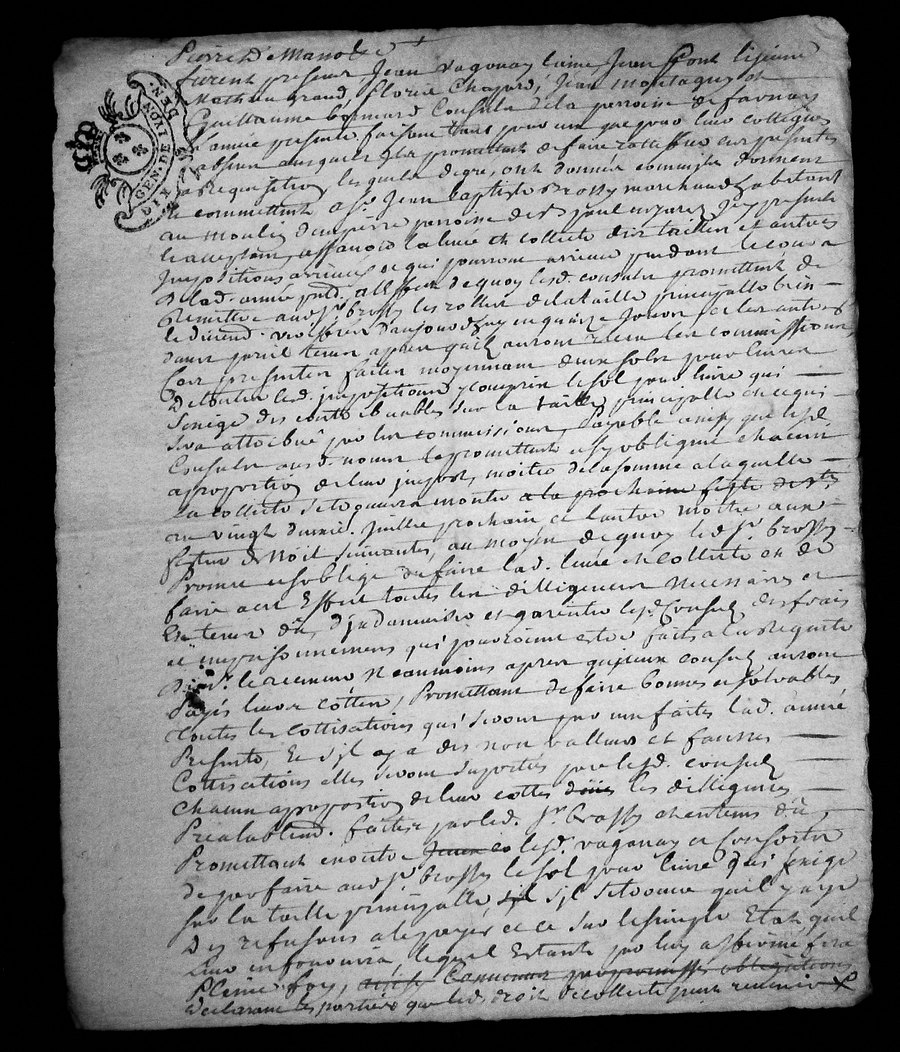 Pierre De Manolxe
furent presens Jean Vaganay laine Jean Pont lisienne
Mathieu grand florie Chapard, Jean montagny et
Guillaume bonnard Consuls de la parroisse de farnay
lannée presente faisant tant pour eux que pour leur collegues
absens ausquels ils promettent de faire ratiffier ces presentes
a Requisition, lesquels de gré, ont donnée commise donnent
et committent a sr. Jean baptiste Brossy marchand habitant
au moulin parroisse de st paul en jarez Icy present
et acceptant, assavoir la levée et collecte des tailles et autres
Impositions arrivées et qui pourront arriver pendant le cours
de lad. année, a leffect de quoy lesd. consuls promettent de
Remettre aud. sr. brossy les rolles de la taille principalle
le dixiend. vercheres daujourdhuy en quinze Jours, et les autres
dans pareil temps apres quils auront receu les commissions
Ces presentes faites moyennant deux sols pour livres
De toutes lesd. impositions y compris le sol pour livre qui
Sexige des contribuables sur la taille principalle ou ce qui
sera attribué par les commissions, Payable ainsy que lesd.
Consuls aud. noms le promettent et sy obligent chacun
a proportion de leur imposts moitié de la somme a laquelle
la collecte se trouvera monter a la prochaine feste de
au vingt deuxe. Juillet prochain et lautre moitié aux
festes de Noël suivantes, au moyen de quoy led. sr. brossy
Promet et soblige de faire lad. levée et collecte et de
faire a cet Effect toutes les dilligences necessaires et
en temps dû, dindamniser et garentir lesd. Consuls des frais
et imprisonnements qui pourroient estre faits a la Requette
de mr. le receveur Neanmoins apres quiceux consuls auront
Payés leurs cottes, Promettant de faire bonnes et solvables
toutes les cottisations qui seront par eux faites lad. année
Presente, Et sil y a des non valleurs et fausses
Cottisations elles seront suportées par lesd. consuls
Chacun a proportion de leur cottes les dilligences
Prealablemt. faites par led. sr. brossy et en tems dû,
Promettant en outre lesd. vaganay et Consorts
de parfaire aud. sr. brossy le sol pour livre qui sexige
sur la taille principalle, sil se trouve quil y aye
Des refusans a le payer et ce sur le simple Etat quil
leur en fournira, lequel Estant par luy affirmé fera
Pleine foy, obligations
declarant les parties que led. droit de collecte peut revenir
GEN. DE LYON
DIX DEN.